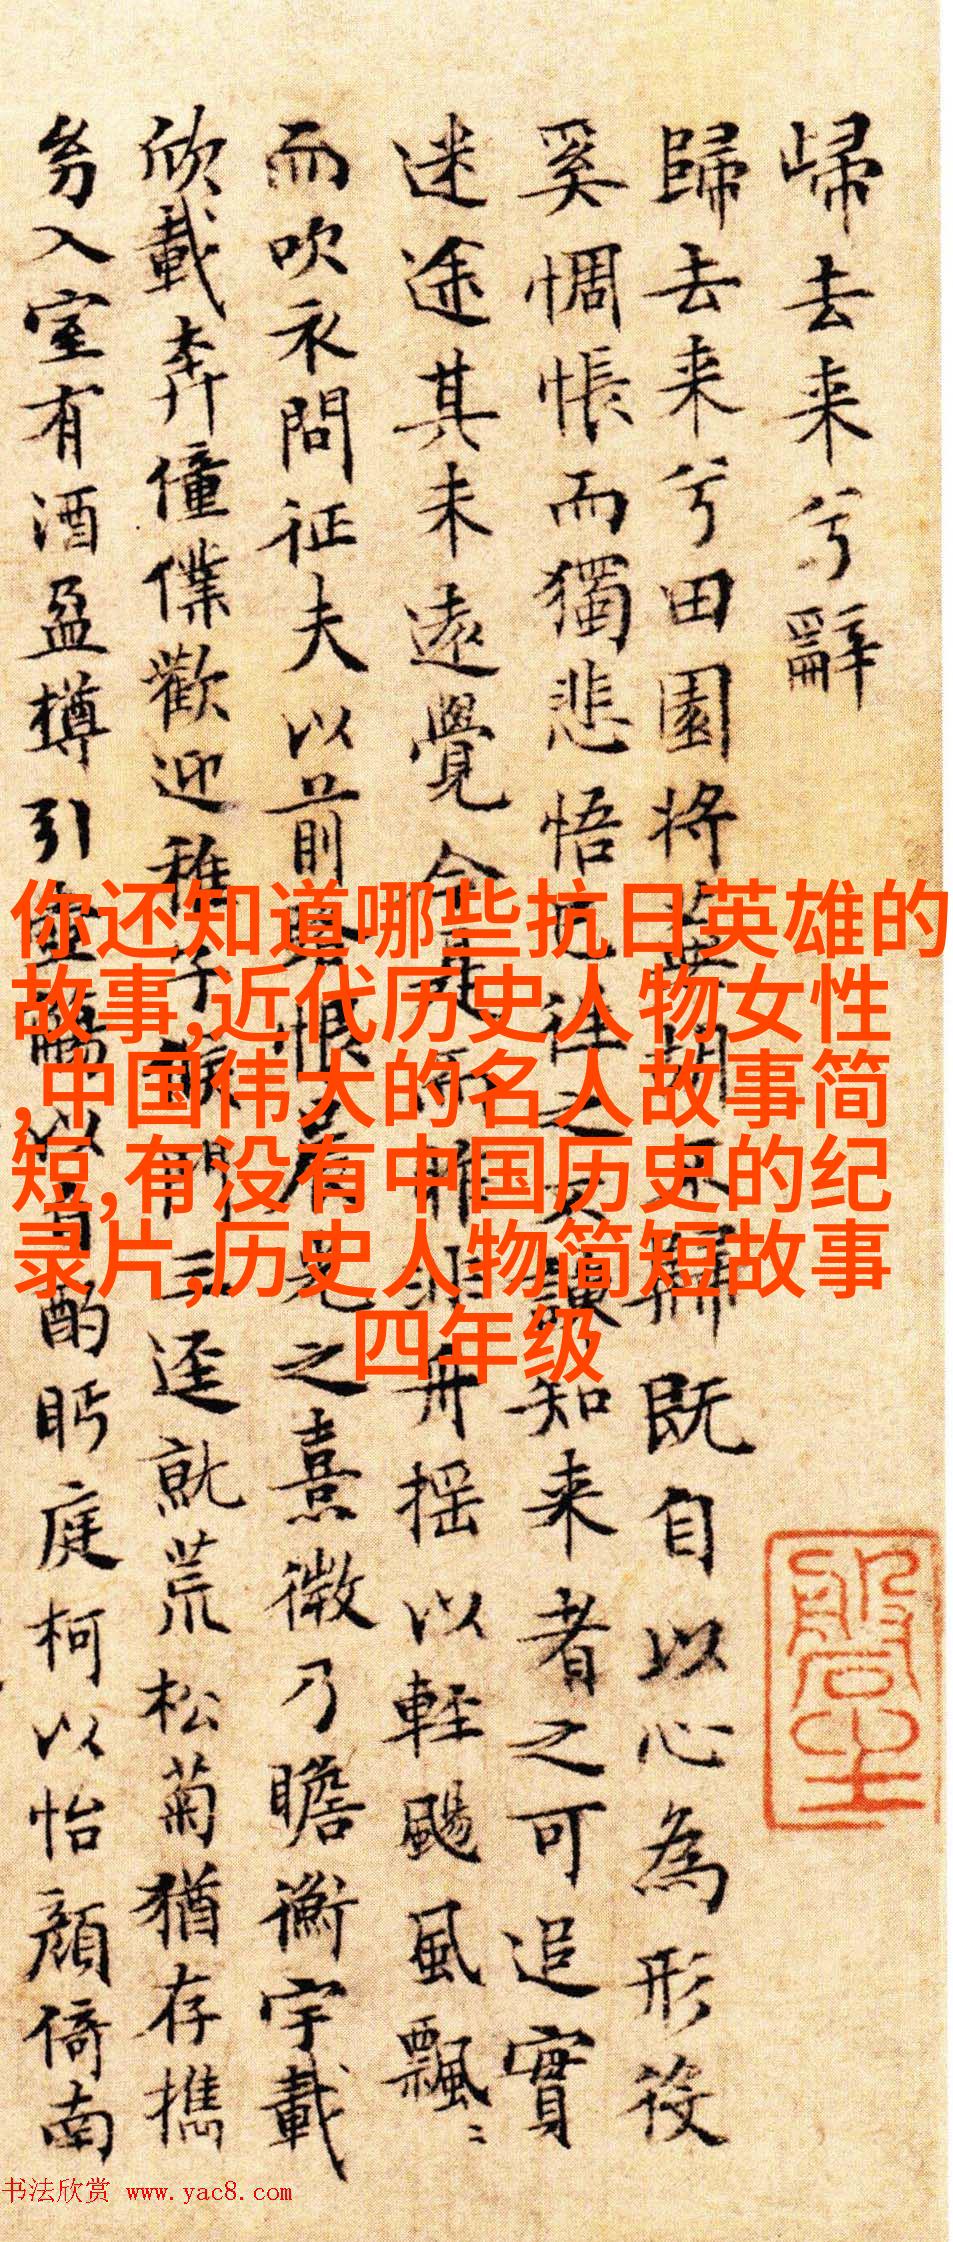 歸去来兮辭
歸去来兮田園将蕪胡不歸既自以心為形役
奚惆悵而獨悲悟已往之不諫知来者之可追實
迷途其未遠覺今是而昨非舟摇以軽颺風飄〻
而吹衣問征夫以前路恨晨光之熹微乃瞻衡宇載
欣載奔僮僕歡迎稚子候門三逕就荒松菊猶存携
㓜入室有酒盈樽引壺觴以自酌眄庭柯以怡顔倚南
你还知道哪些抗日英雄的
故事,近代历史人物女性
,中国伟大的名人故事简
短,有没有中国历史的纪
录片,历史人物简短故事
四年级
书法欣赏 www.yac8.com